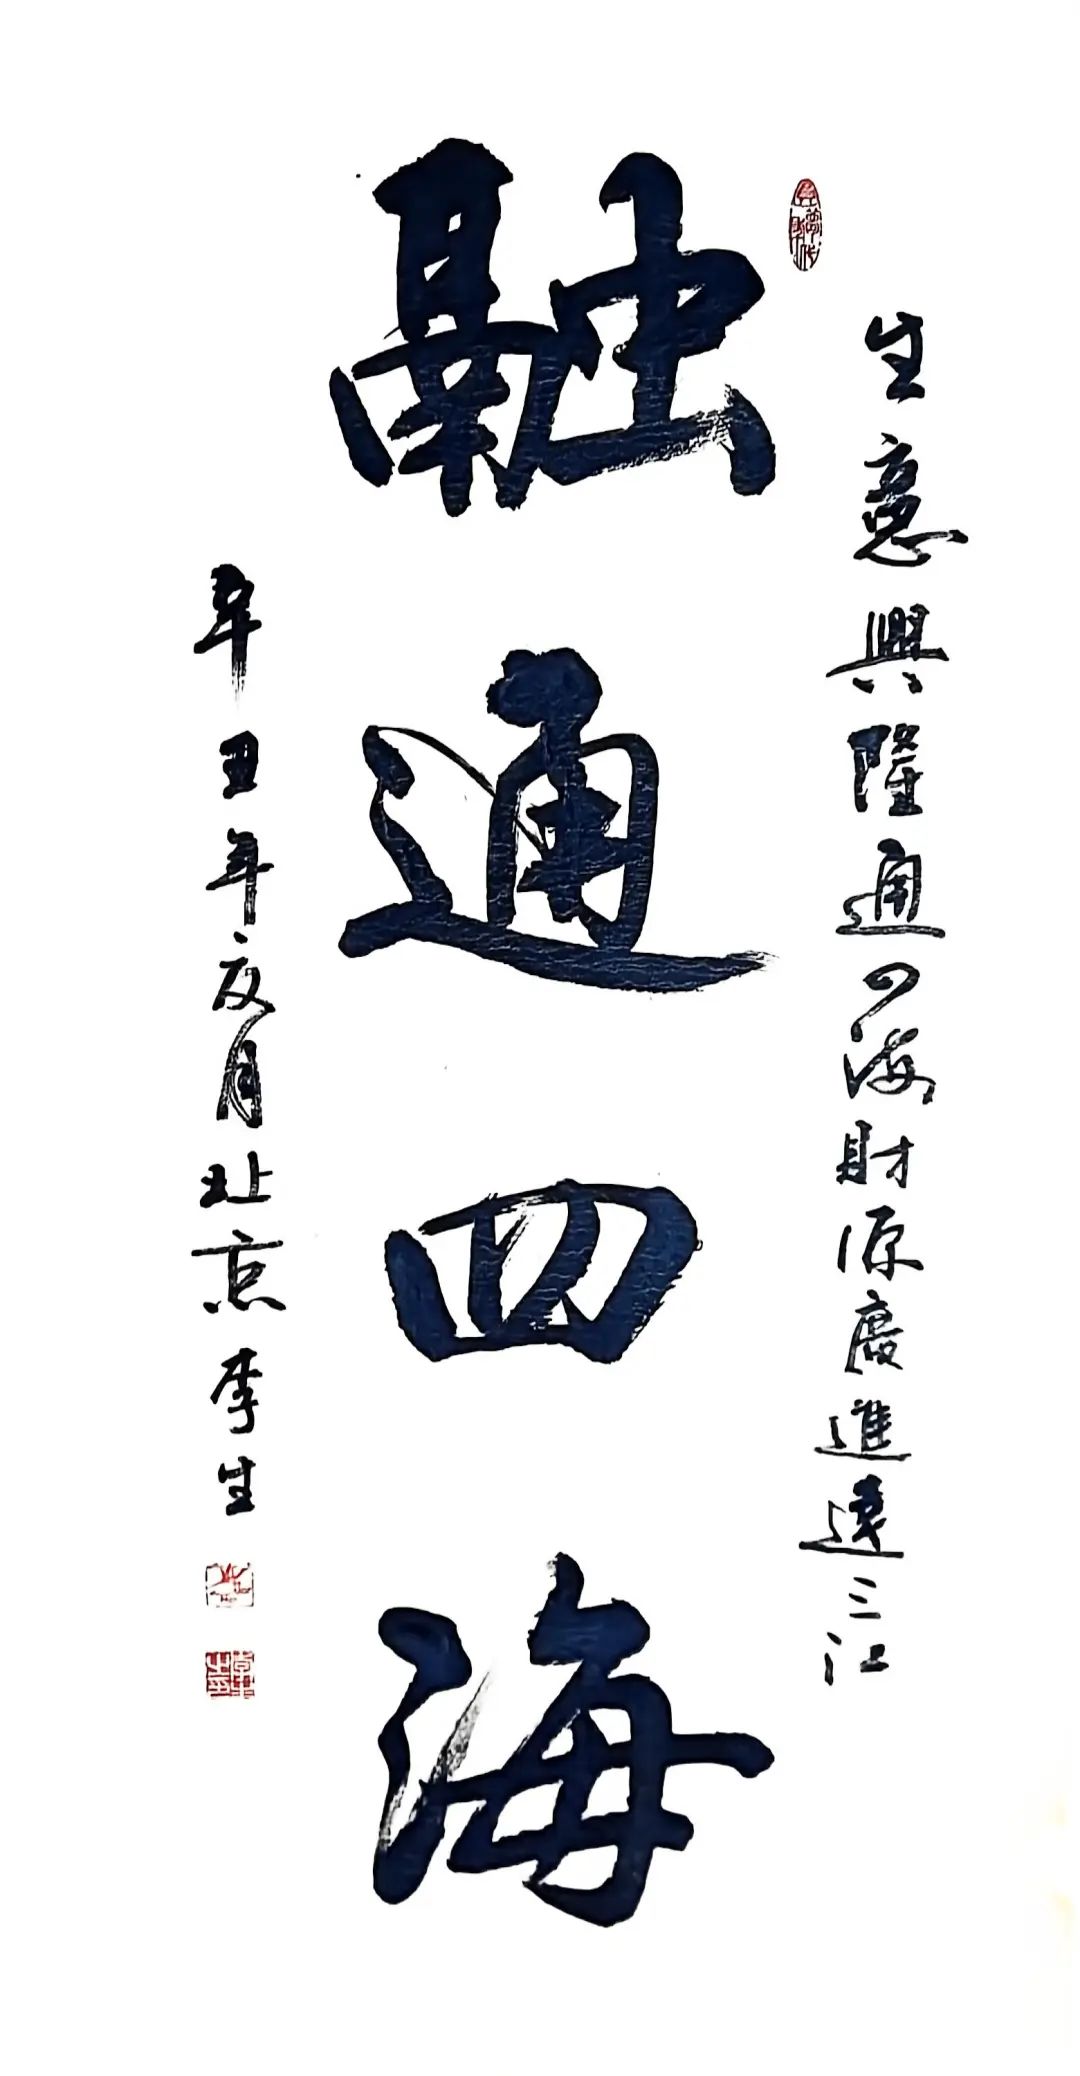 生意興隆通四海財源廣進達三江
融通四海
辛丑年夏月北京李生